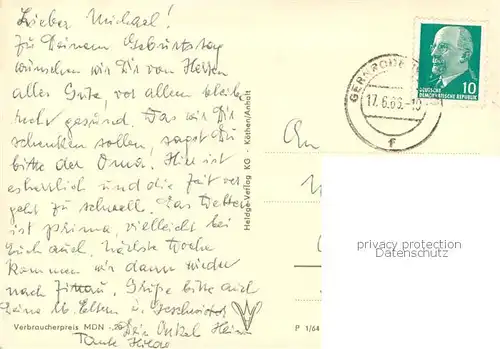 Lieber Michael!
Zu Deinem Geburtstag
wünschen wir Dir von Herzen
alles Gute, vor allem bleibe
recht gesund. Was wir Dir
schenken sollen, sagst Du
bitte der Oma. Hier ist
es herrlich und die Zeit ver
geht zu schnell. Das Wetter
ist prima, vielleicht bei
Euch auch. Nächste Woche
kommen wir dann wieder
nach Grüße bitte auch
Deine lb. Eltern u. Geschwister
Dein Onkel Heinz
Tante Hilde
Verbraucherpreis MDN -,20
Heldge-Verlag KG · Köthen/Anhalt
P 1/64
An
GERNRODE
17.6.65.-10
f
10
DEUTSCHE
DEMOKRATISCHE REPUBLIK
privacy protection
Datenschutz